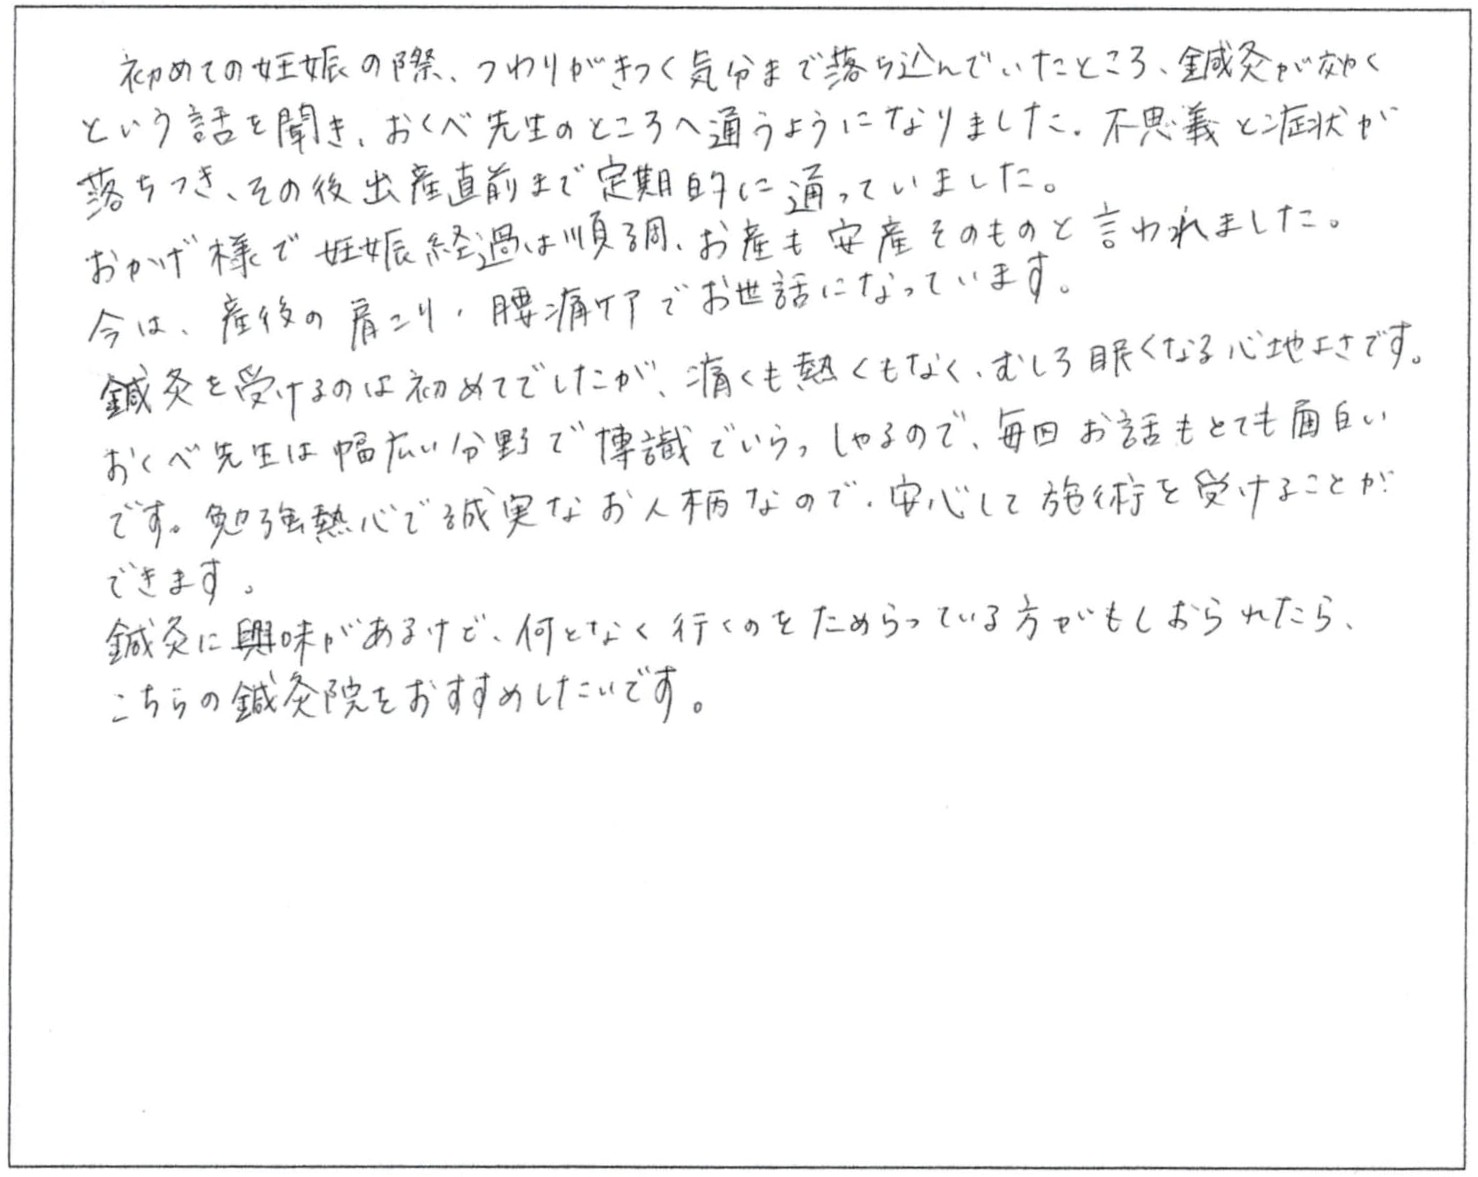 初めての妊娠の際、つわりがきつく気分まで落ち込んでいたところ、鍼灸が効く
という話を聞き、おくべ先生のところへ通うようになりました。不思義と症状が
落ちつき、その後出産直前まで定期的に通っていました。
おかげ様で妊娠経過は順調、お産も安産そのものと言われました。
今は、産後の肩こり・腰痛ケアでお世話になっています。
鍼灸を受けるのは初めてでしたが、痛くも熱くもなく、むしろ眠くなる心地よさです。
おくべ先生は幅広い分野で博識でいらっしゃるので、毎回お話もとても面白い
です。勉強熱心で誠実なお人柄なので、安心して施術を受けることが
できます。
鍼灸に興味があるけど、何となく行くのをためらっている方がもしおられたら、
こちらの鍼灸院をおすすめしたいです。